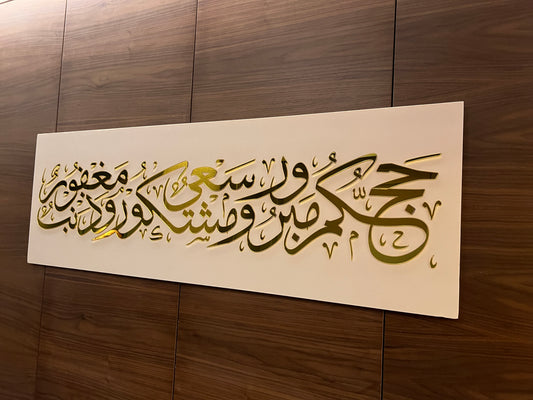 حجكم مبرور وسعي مشكور وذنب مغفور